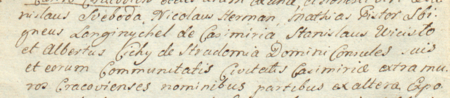 nislaus Svoboda, Nicolaus Herman, Mathias Pistor Sbi,
gneus Langinychel de Casimiria Stanislaus Uicislo
et Albertus Cichy de Stradomia Domini Consules suis
et eorum Communitatis Civitatis Casimiriæ extra mu,
ros Cracovienses nominibus partibus ex altera Expo,